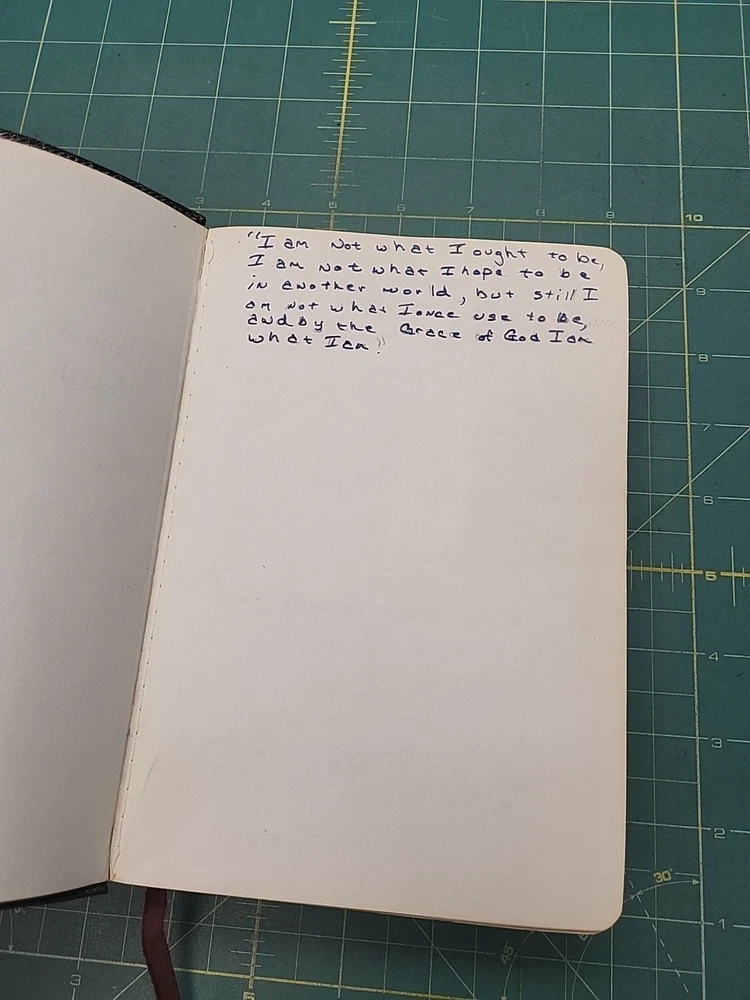 "I am Not what I ought to be,
I am Not what I hope to be
in another world, but still I
am not what I once use to be,
and by the Grace of God I am
what I am."
3
4
5
6
7
8
9
10
9
8
7
6
5
4
3
2
1
30°
45°
3
5